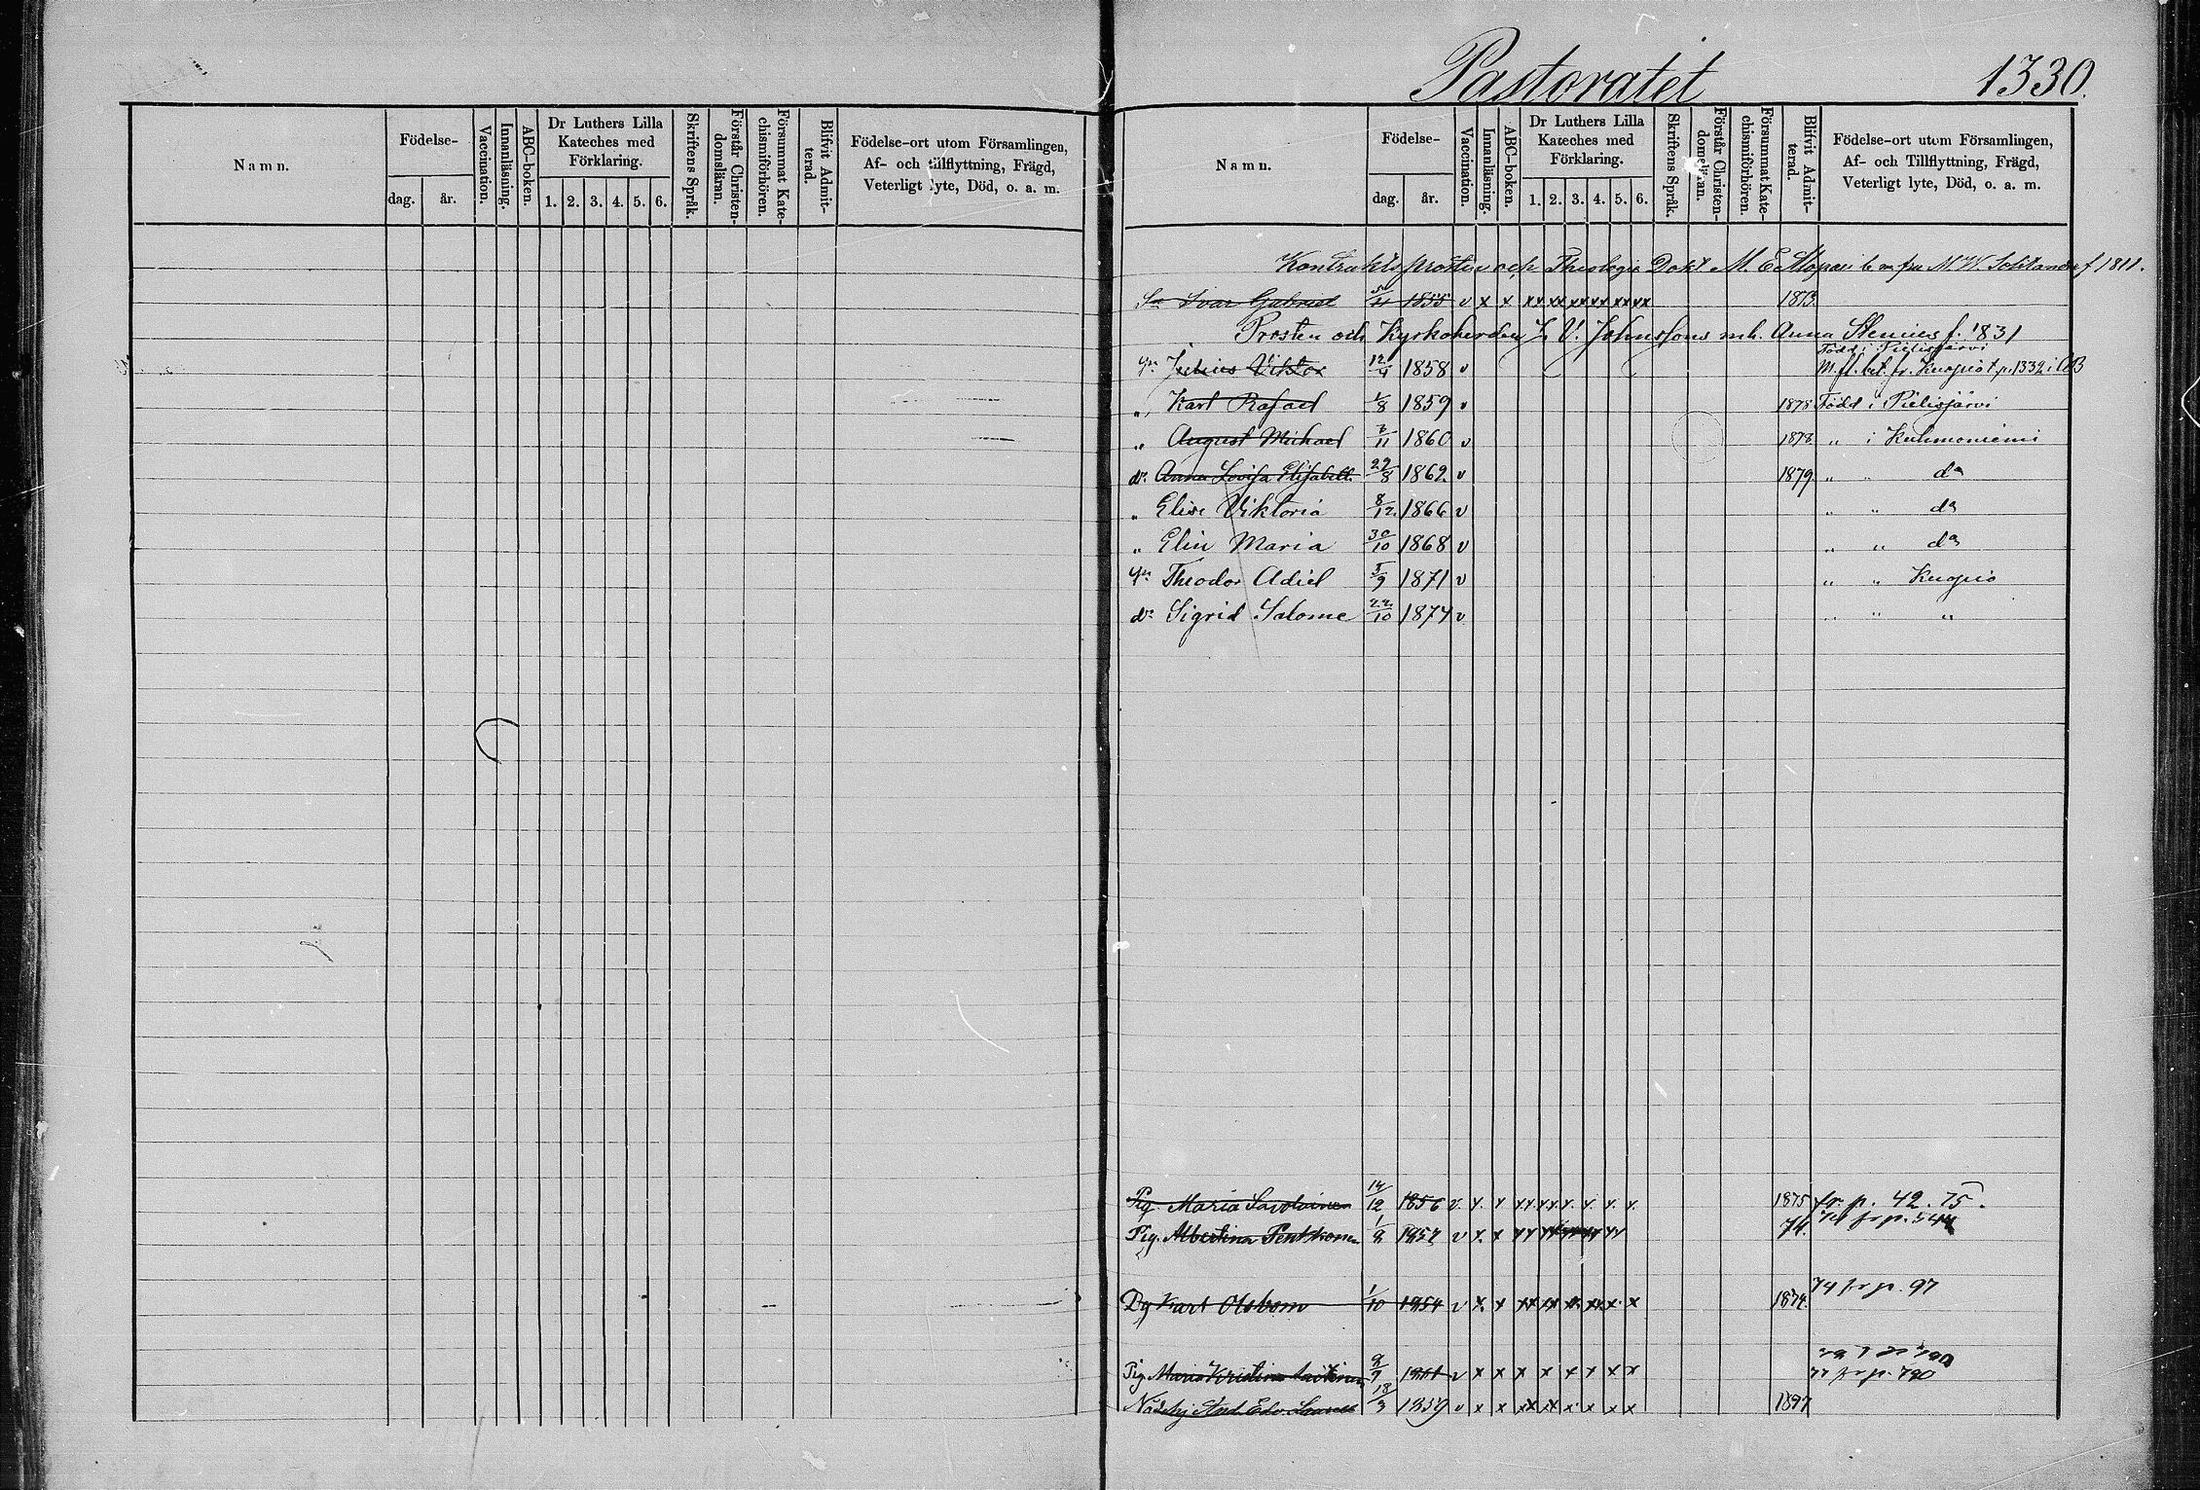 Namn.
Födelse-
dag. år.
Vaccination.
Innanläsning.
ABC-boken.
Dr Luthers Lilla
Kateches med
Förklaring.
1. 2. 3. 4. 5. 6.
Skriftens Språk.
Förstår Christen-
domsläran.
Försummat Kate-
chismiförhören.
Blifvit Admit-
terad.
Födelse-ort utom Församlingen,
Af- och tillflyttning, Frägd,
Veterligt lyte, Död, o. a. m.
Pastoratet 1330.
Namn.
Födelse-
dag. år.
Vaccination.
Innanläsning.
ABC-boken.
Dr Luthers Lilla
Kateches med
Förklaring.
1. 2. 3. 4. 5. 6.
Skriftens Språk.
Förstår Christen-
domsläran.
Försummat Kate-
chismiförhören.
Blifvit Admit-
terad.
Födelse-ort utom Församlingen,
Af- och Tillflyttning, Frägd,
Veterligt lyte, Död, o. a. m.
Kontraktsprosten och Theologie Dokt M. E. M. W. f 1811.
Ivar Gabriel 5/4 1855 v x x xx xx xx xx xx xx 1873
Prosten och Kyrkoherden Z. V. Johnssons m h. Anna Stenius f. 1831
Född i Pielisjärvi
Julius Viktor 12/4 1858 v M. fl. bet. fr. Kuopio t. p. 1332 i CB
„ Karl Rafael 1/8 1859 v 1878 Född i Pielisjärvi
„ August Michael /11 1860 v 1878 „ i Kuhmoniemi
dr Anna Lovisa Elisabeth 29/8 1862 v 1879 „ „ do
„ Elise Viktoria 8/12 1866 v „ „ do
„ Elin Maria 30/10 1868 v „ „ do
Theodor Adiel 5/9 1871 v „ „ Kuopio
dr Sigrid Salome 22/10 1874 v „ „ „
Pig. Maria Savolainen 14/12 1856 v. x. x xx xx. x. x. x. 1875 fr. p. 42. 75.
Pig. Albertina Penttonen 1/8 1857 v x. x xx xx xx xx xx 74. 74 fr p. 544
Dg Karl Olsbom 1/10 1854 v x. x xx xx x. xx. x. x 1874. 74 fr p. 97
Pig. Maria Kristina 9/7 1861 v x x x x x x x x 77 fr p. 790
And. Edv. 18/3 1859 v x x xx x x x x x 1877